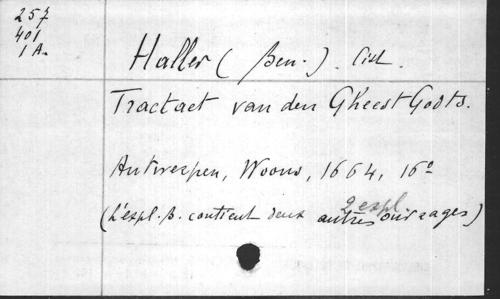 257
401
1 A.
Haller (Ben.). Cist.
Tractaet van den Gheest Godts.
Antwerpen, Woons, 1664, 16°
2 expl.
(L'expl. B. contient deux autres ouvrages)